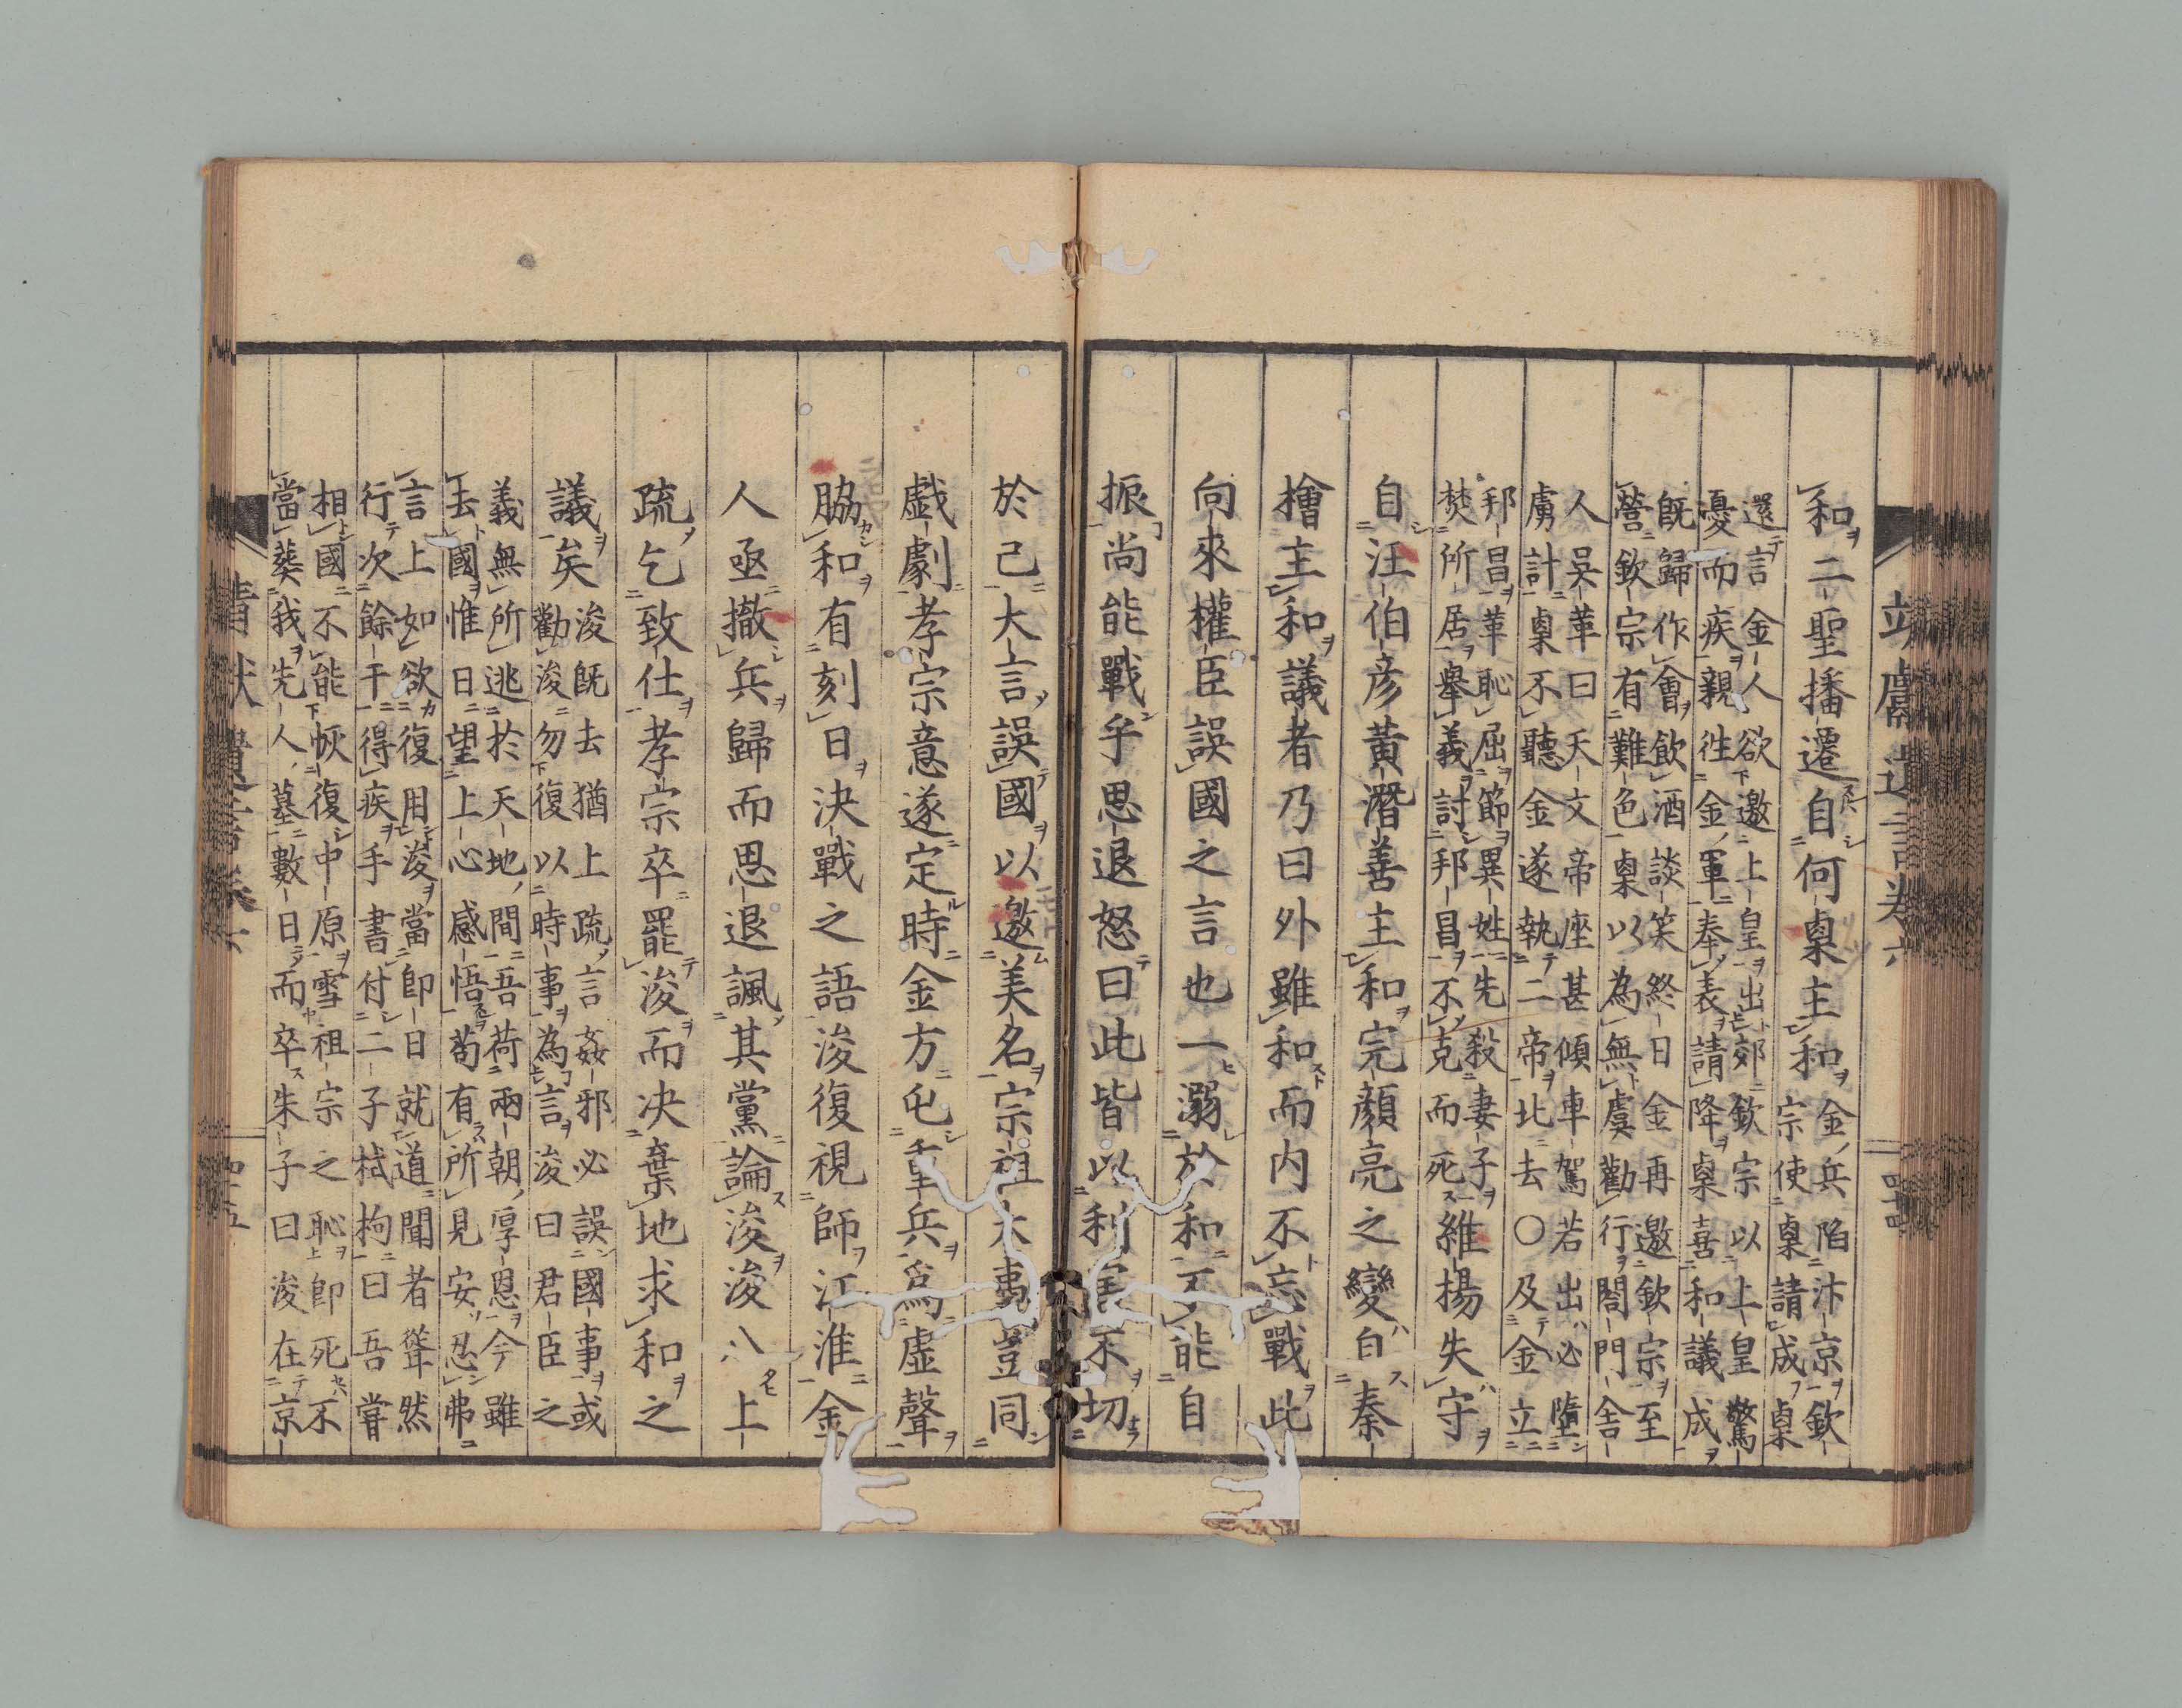 靖獻遺言卷六
和二聖播遷自何㮚主和金兵陷汴京欽
宗使㮚請成㮚
還言金人欲邀上皇出郊欽宗以上皇驚
憂而疾親往金軍奉表請降㮚喜和議成
既歸作會飲酒談笑終日金再邀欽宗至
營欽宗有難色㮚以為無虞勸行閤門舍
人吳革曰天文帝座甚傾車駕若出必墮
虜計㮚不聽金遂執二帝北去〇及金立
邦昌革恥屈節異姓先殺妻子
焚所居舉義討邦昌不克而死維揚失守
自汪伯彦黃潛善主和完顔亮之變自秦
檜主和議者乃曰外雖和而内不忘戰此
向來權臣誤國之言也一溺於和不能自
振尚能戰乎思退怒曰此皆以利害不切
於己大言誤國以邀美名宗社大事豈同
戯劇孝宗意遂定時金方屯重兵爲虛聲
脇和有刻日決戰之語浚復視師江淮金
人亟撤兵歸而思退諷其黨論浚浚八上
疏乞致仕孝宗卒罷浚而决棄地求和之
議矣浚既去猶上疏言姦邪必誤國事或
勸浚勿復以時事為言浚曰君臣之
義無所逃於天地間吾荷兩朝厚恩今雖
去國惟日望上心感悟苟有所見安忍弗
言上如欲復用浚當即日就道聞者聳然
行次餘干得疾手書付二子栻枃曰吾嘗
相國不能恢復中原雪祖宗之恥即死不
當葬我先人墓數日而卒朱子曰浚在京
靖獻遺言卷六